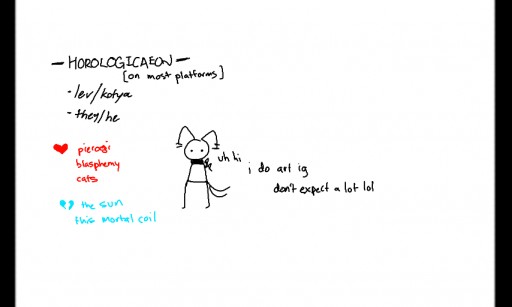 — HOROLOGICAEON —
[on most platforms]
- lev/kotya
- they/he
pierogi
blasphemy
cats
the sun
this mortal coil
uh hi
i do art ig
don't expect a lot lol